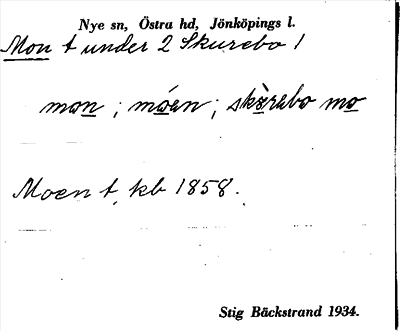 Nye sn, Östra hd, Jönköpings l.
Mon t under 2 Skurebo 1
mon ; móen ; skòrebo mo
Moen t. kb 1858.
Stig Bäckstrand 1934.